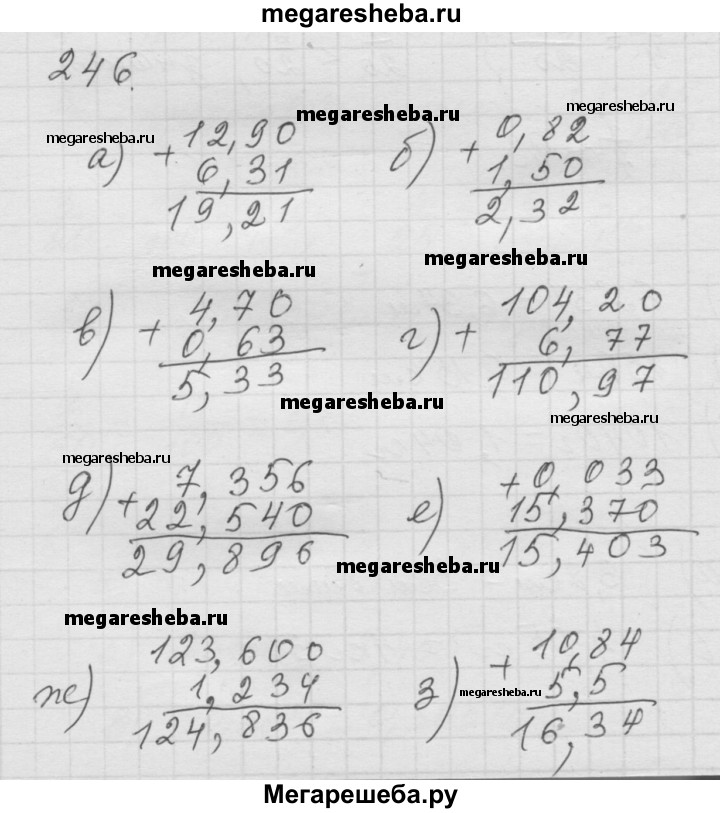 megaresheba.ru
246.
megaresheba.ru
megaresheba.ru
megaresheba.ru
а) + 12,90
6,31
19,21
б) + 0,82
1,50
2,32
megaresheba.ru
megaresheba.ru
в) + 4,70
0,63
5,33
г) + 104,20
6,77
110,97
megaresheba.ru
megaresheba.ru
megaresheba.ru
д) + 7,356
22,540
29,896
е) + 0,033
15,370
15,403
megaresheba.ru
megaresheba.ru
ж) 123,600
1,234
124,836
з) + 10,84
5,5
16,34
megaresheba.ru
Мегарешеба.ру